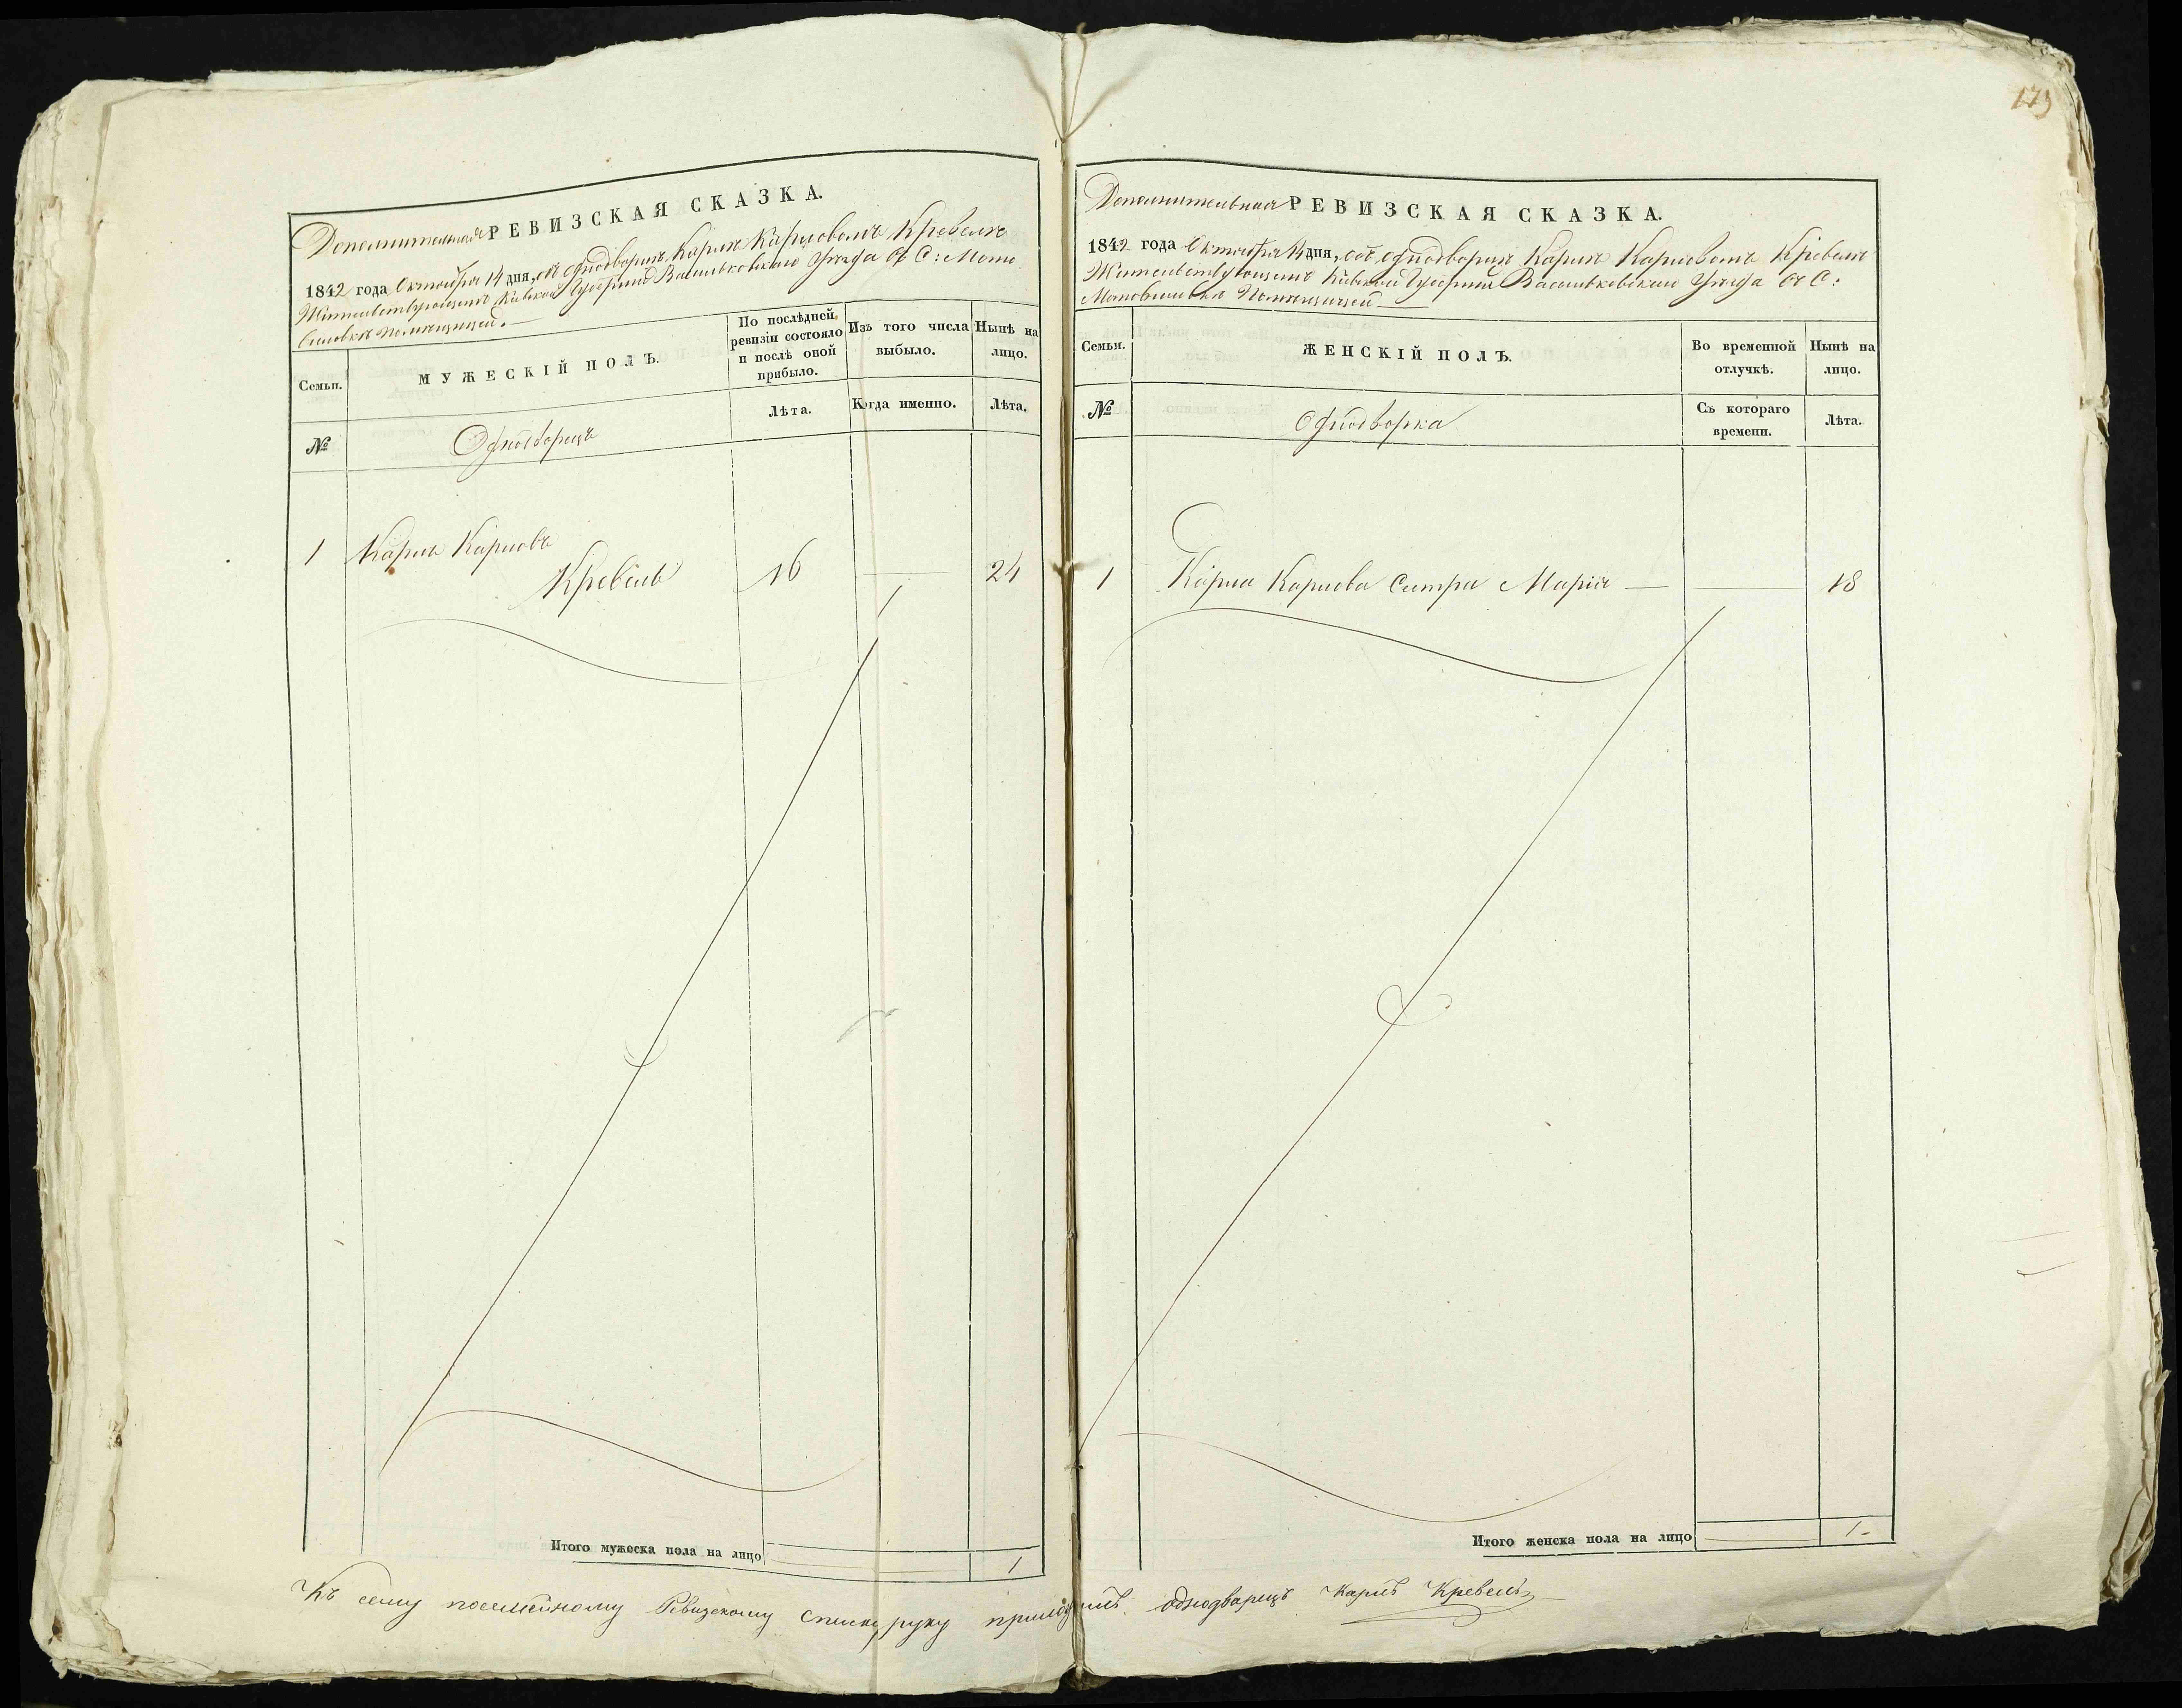 173
Дополнительная РЕВИЗСКАЯ СКАЗКА.
1842 года Октября 14 дня, отъ однодворца Карла Карловича Кревель
Жительствующаго Кіевской Губерніи Васильковскаго Уезда въ С: Мото
виловкѣ
Семьи.
МУЖЕСКІЙ ПОЛЪ.
По послѣдней
ревизіи состояло
и послѣ оной
прибыло.
Изъ того числа
выбыло.
Нынѣ на
лицо.
№
Однодворецъ
Лѣта.
Когда именно.
Лѣта.
1 Карлъ Карловъ
Кревель 16 — 24
Итого мужеска пола на лицо 1
Дополнительная РЕВИЗСКАЯ СКАЗКА.
1842 года Октября 14 дня, отъ однодворца Карла Карловича Кревель
Кіевской Губерніи Васильковскаго Уезда въ С:
Мотовиловкѣ
Семьи.
ЖЕНСКІЙ ПОЛЪ.
Во временной
отлучкѣ.
Нынѣ на
лицо.
№
Однодворка
Съ котораго
времени.
Лѣта.
1 Карла Карлова Систра Марія — — 18
Итого женска пола на лицо 1-
Къ сему посемейному Ревизскому списку руку приложилъ однодварецъ Карлъ Кревель